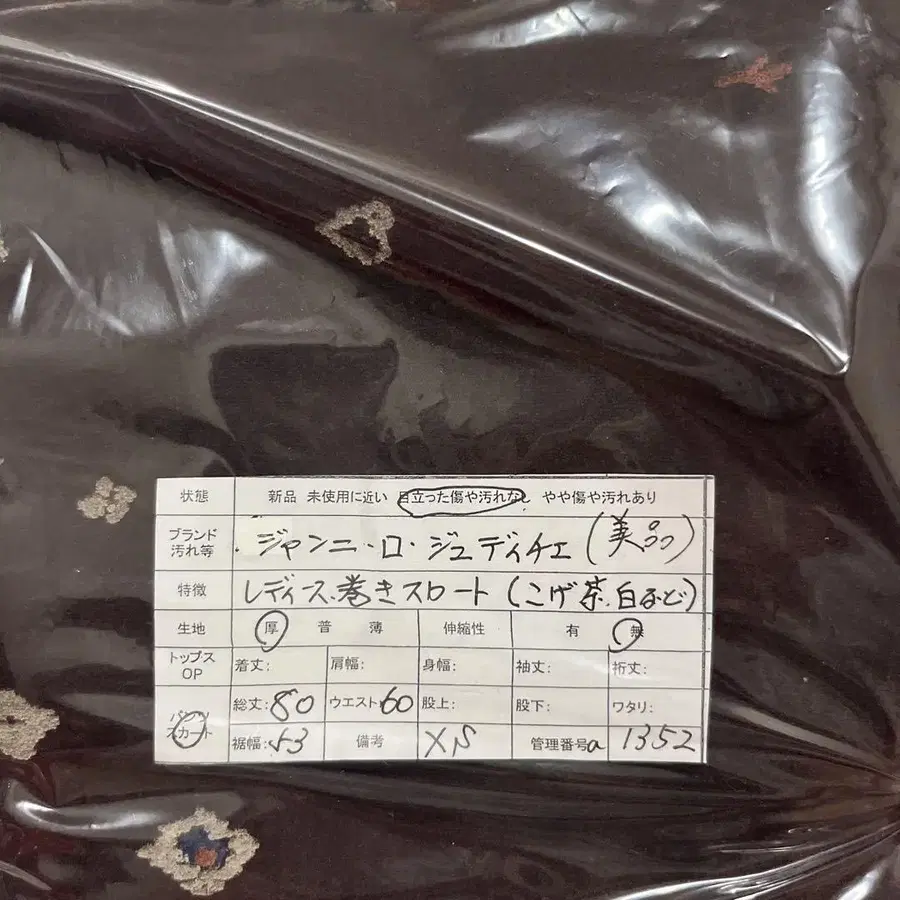 状態 新品 未使用に近い 目立った傷や汚れなし やや傷や汚れあり
ブランド 汚れ等 ジャンニ・ロ・ジュディチェ (美品)
特徴 レディース.巻きスロート (こげ茶.白など)
生地 厚 普 薄 伸縮性 有 無
トップス OP 着丈: 肩幅: 身幅: 袖丈: 裄丈:
スカート 総丈:80 ウエスト60 股上: 股下: ワタリ:
裾幅:53 備考 XS 管理番号a 1352